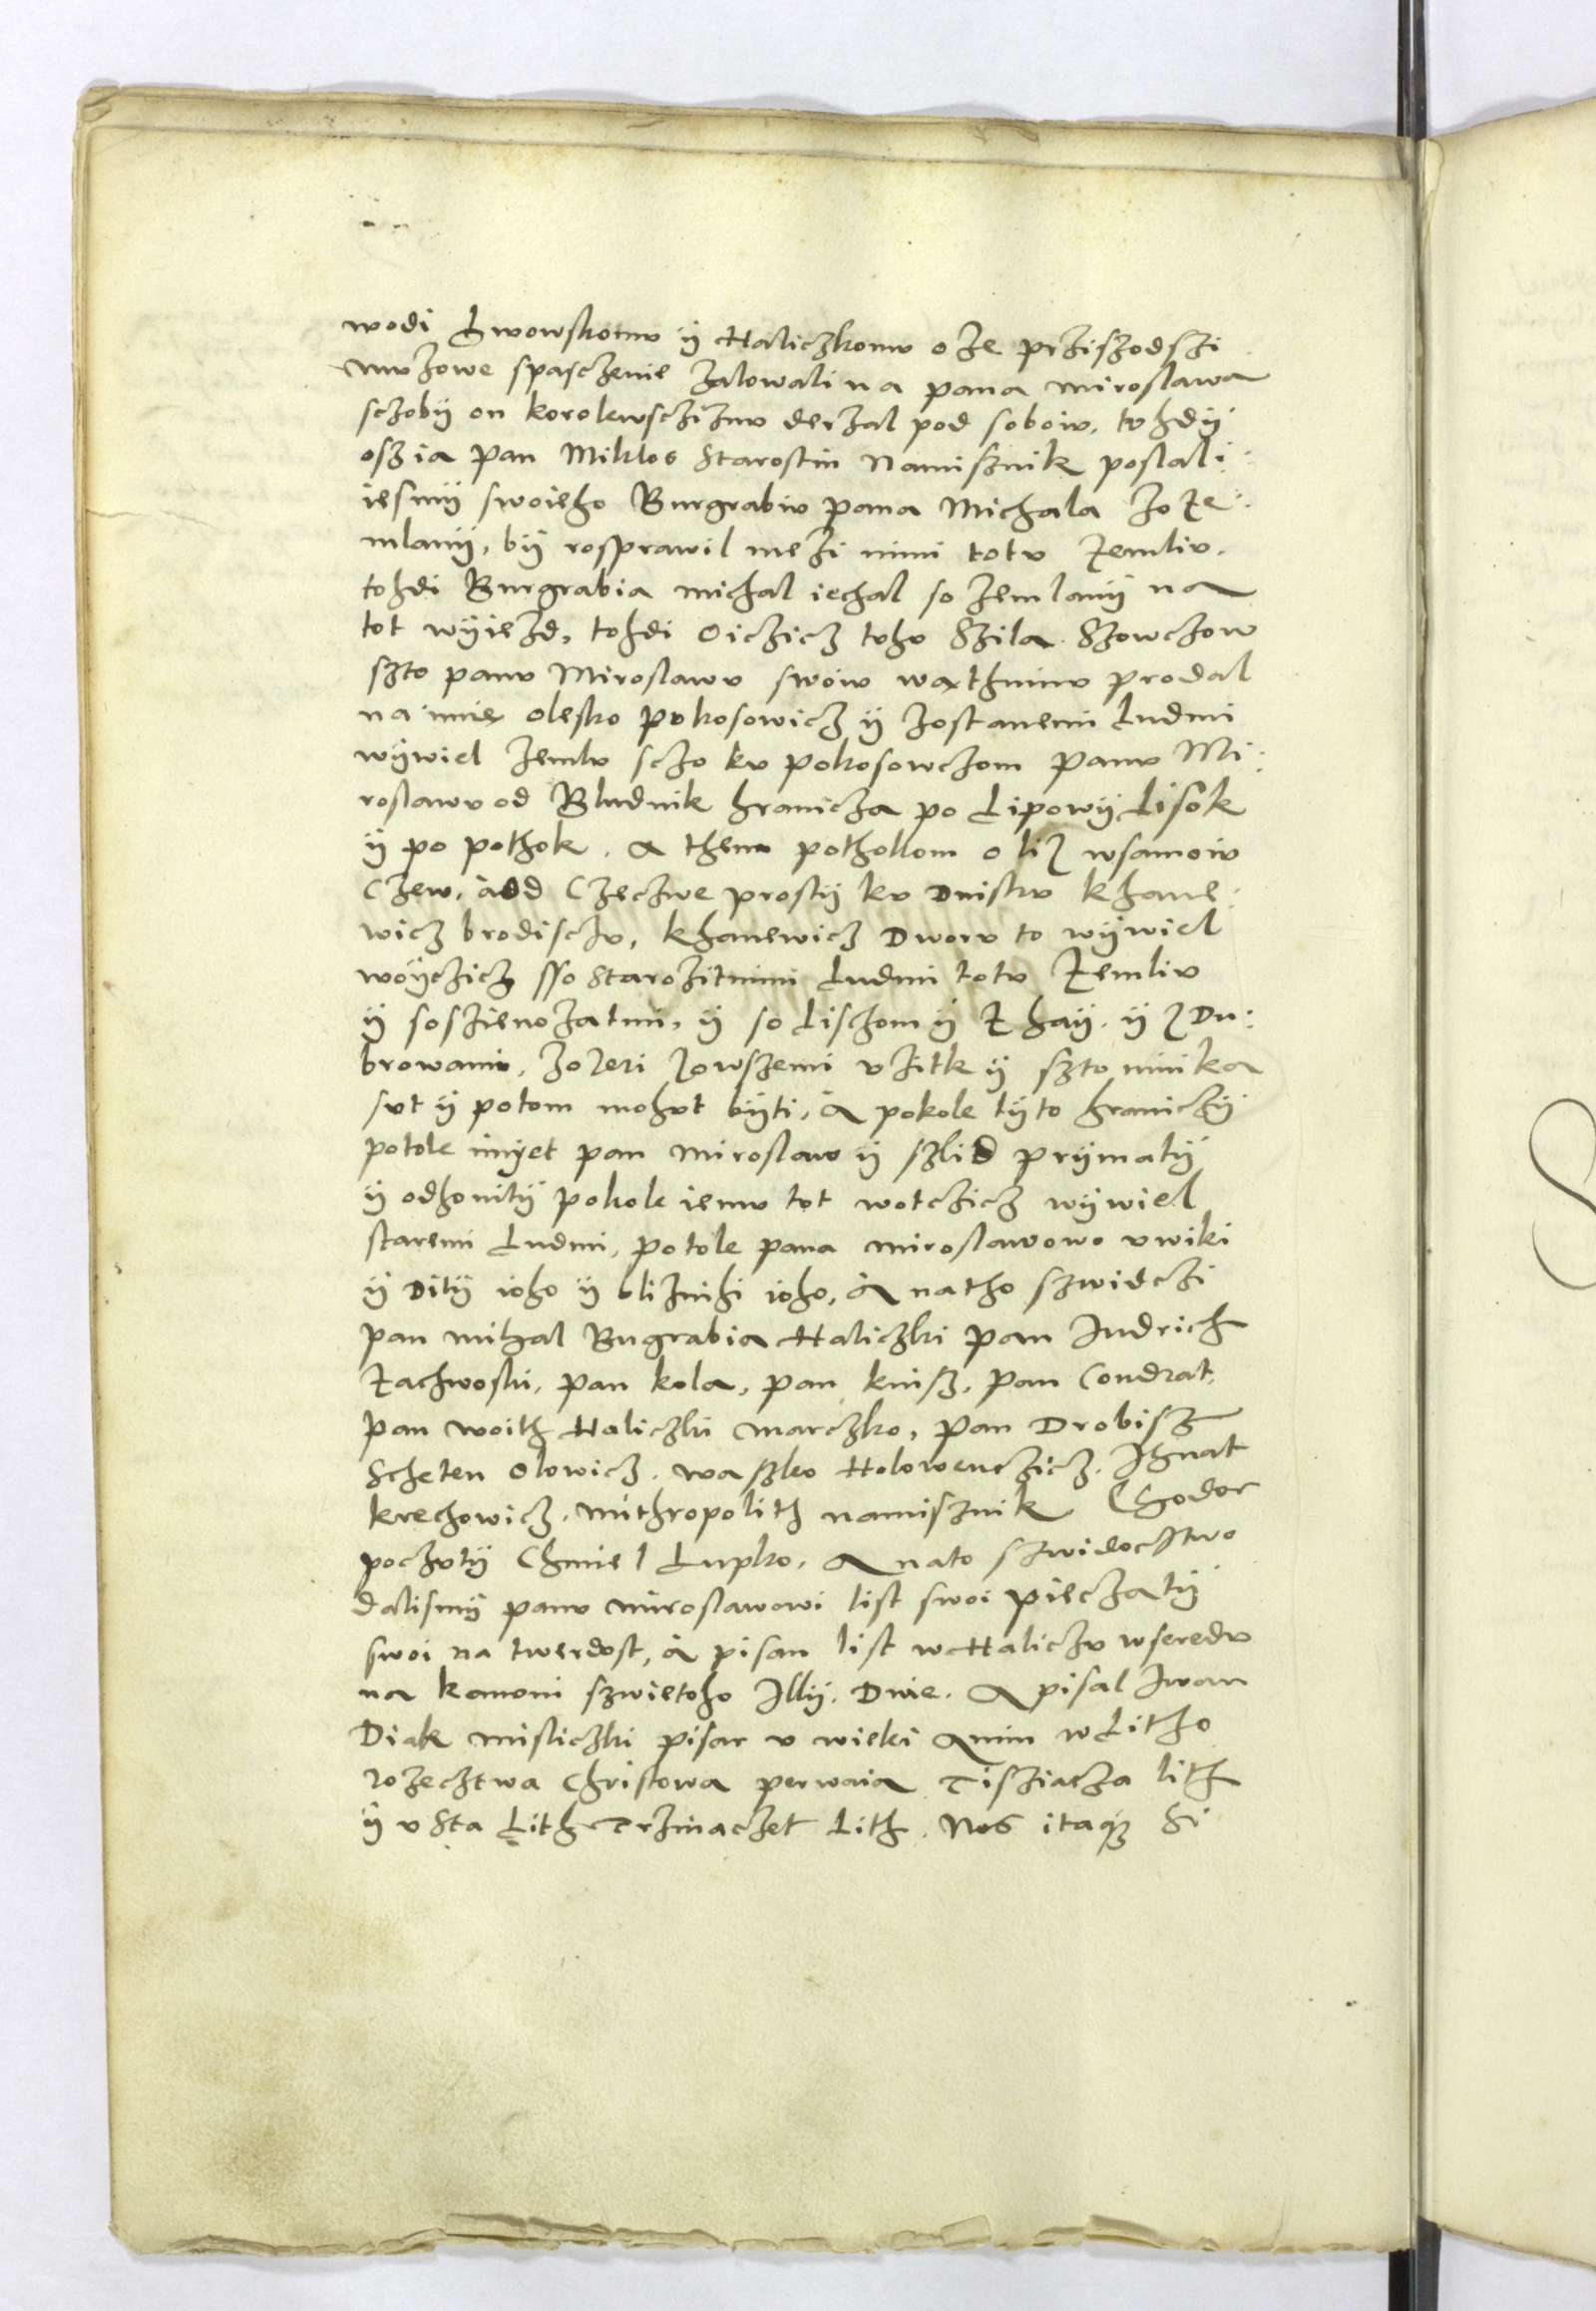 wodi Lwowskomv ÿ Haliczkomv oze prziszodszi
mvzowe spasczenie zalowali na pana miroslawa
sczobÿ on korolewsczizmv derzal pod soboiv. tohdÿ
oszia pan Miklos Starostin Namisznik poslali
iesmÿ swoieho Burgrabiv pana Michala zo ze:
mlanÿ, bÿ rosprawil mezi nimi totv zemliv.
tohdi Burgrabia michal iechal so zemlanÿ na
tot wÿiezd, tohdi Oiczicz toho Szila Szowczow
szto panv Miroslawv swoiv waxthninv prodal
na imie olesko pvkosowicz ÿ zostanemi Ludmi
wÿwiel zemlv sczo kv pokosowczom panv Mi:
roslawv od Bludnik hranicza po Lipowÿ Lisok
ÿ po pothok. A them pothollom oliz wsamoiv
Czew, add Czeczwe prostÿ kv Dnistrv khane:
wicz brodisczv, khanewicz Dworv to wÿwiel
woÿczicz sso Starozitnimi Ludmi totv Zemliv
ÿ soszienozatmi, ÿ so Lisczom ÿ Z haÿ. ÿ z Du:
browami, zozeri zowszemi vzitk ÿ szto ninika
svt ÿ potom mohvt bÿti, A pokole tÿto hraniczÿ
potole imÿet pan miroslaw ÿ szlid prÿmatÿ
ÿ odhonitÿ pokole iemv tot wotczicz wÿwiel
staremi Ludmi, potole pana miroslawowo vwiki
ÿ Ditÿ ioho ÿ bliznihi ioho, A natho szwidczi
pan mihal Bugrabia Haliczki pan Indrich
Zachwoski, pan kola, pan knisz, pan Condrat,
pan woith Haliczki marczko, pan Drobisz
Scheten Olowicz. waszko Holowenczicz. Ihnat
krechowicz. mithropolith namisznik Chodor
poczvtÿ Chmiel Lupko. A nato szwidocztwo
dalismÿ panv miroslawowi list swoi pieczatÿ
swoi na twerdost, A pisan list w Haliczv wseredv
na kanoni szwietoho Illÿ. Dnie. A pisal Iwan
Diak misticzki pisar v wieki Amin w Litho
rozecztwa Christowa perwaia Tisziacza lith
ÿ v Sta Lith Trzinaczet Lith. Nos itaque Si